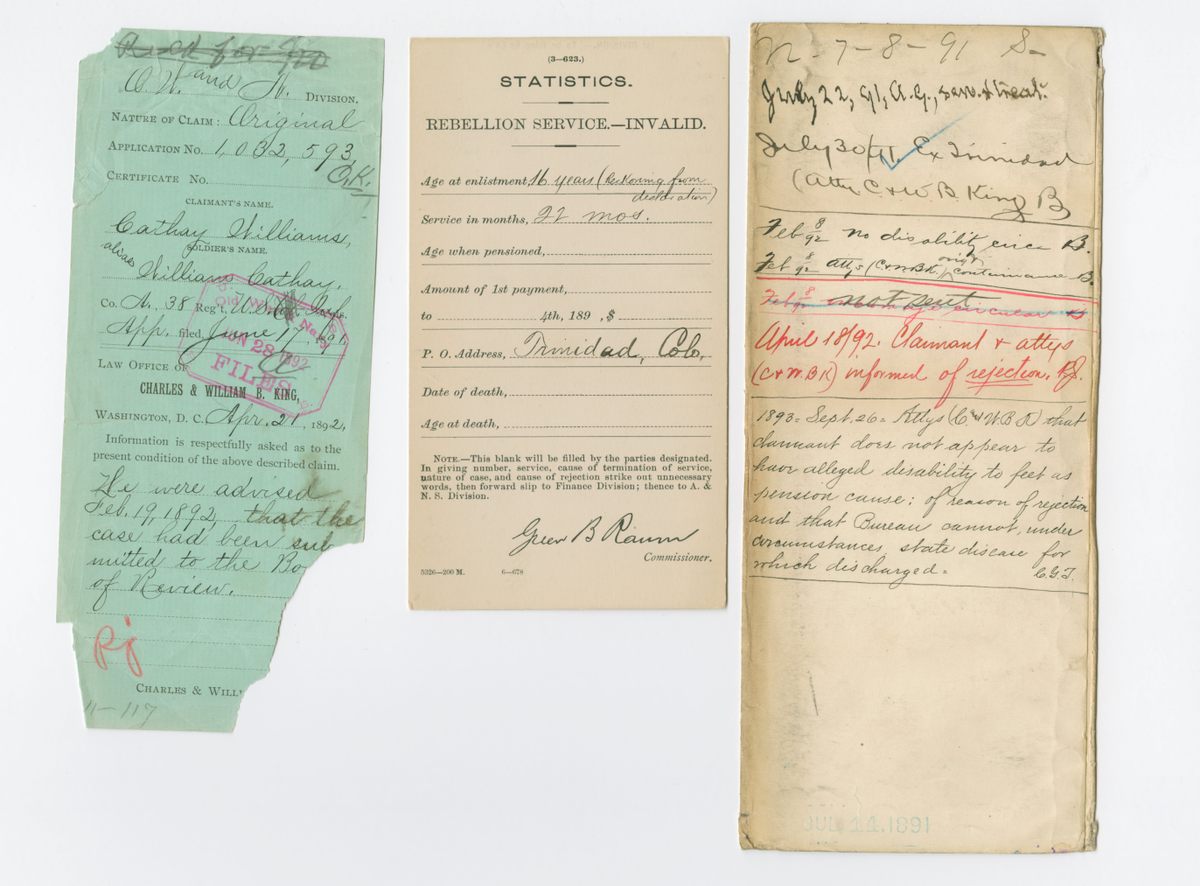 O. W. and N. DIVISION.
NATURE OF CLAIM: Original
APPLICATION No. 1,032,593
O.K.
CERTIFICATE No.
CLAIMANT'S NAME.
Cathay Williams,
SOLDIER'S NAME.
alias William Cathay.
Co. A, 38 Reg't, U.S.
App. filed June 17, 91.
Old War & Navy
JUN 28 1892
FILES
LAW OFFICE OF
CHARLES & WILLIAM B. KING,
WASHINGTON, D. C. Apr. 21, 1892.
Information is respectfully asked as to the
present condition of the above described claim.
were advised
Feb. 19, 1892, that the
case had been sub
mitted to the Bo
of Review.
Rj
CHARLES & WILL
11-117
(3—623.)
STATISTICS.
REBELLION SERVICE.—INVALID.
Age at enlistment, 16 years (Reckoning from
declaration)
Service in months, 22 mos.
Age when pensioned,
Amount of 1st payment,
to 4th, 189 , $
P. O. Address, Trinidad, Colo,
Date of death,
Age at death,
NOTE.—This blank will be filled by the parties designated.
In giving number, service, cause of termination of service,
nature of case, and cause of rejection strike out unnecessary
words, then forward slip to Finance Division; thence to A. &
N. S. Division.
Green B Raum
Commissioner.
5326—200 M. 6—678
N-7-8-91 S-
July 22, 91, A.G., serv. & treat.
July 30/91. Ex Trinidad
(Attys C & W B. King B
Feb 8/92 no disability circ B.
Feb 8/92 attys (C&WBK) orig contenance B.
Feb 8/92 not sent circular B
April 18/92. Claimant & attys
(C & W. B K) informed of rejection. Rj.
1893 = Sept. 26 = Attys (C & W. B. K) that
claimant does not appear to
have alleged disability to feet as
pension cause; of reason of rejection
and that Bureau cannot, under
circumstances, state disease for
which discharged. C.G.T.
JUL 11.1891